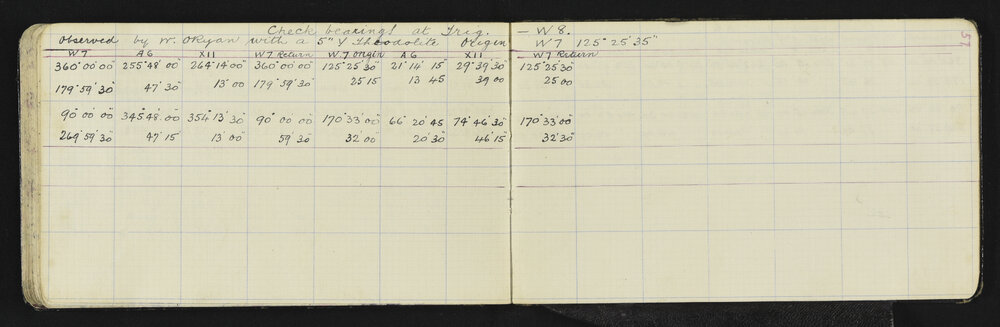 Check bearings at Trig. — W 8.
Observed by W. O'Ryan with a 5" Y Theodolite Origin W 7 125° 25' 35"
57
W 7 A 6 XII W 7 Return W. 7 origin A 6 XII W 7 Return
360° 00' 00" 255° 48' 00" 264° 14' 00" 360° 00' 00" 125° 25' 30" 21° 14' 15" 29° 39' 30" 125° 25' 30"
179° 59' 30" 47' 30" 13' 00" 179° 59' 30" 25 15 13 45 39 00 25 00
90° 00' 00" 345° 48' 00" 354° 13' 30" 90° 00' 00" 170° 33' 00" 66° 20' 45 74° 46' 30" 170° 33' 00"
269° 59' 30" 47' 15" 13' 00" 59' 30" 32' 00" 20' 30" 46' 15" 32' 30"